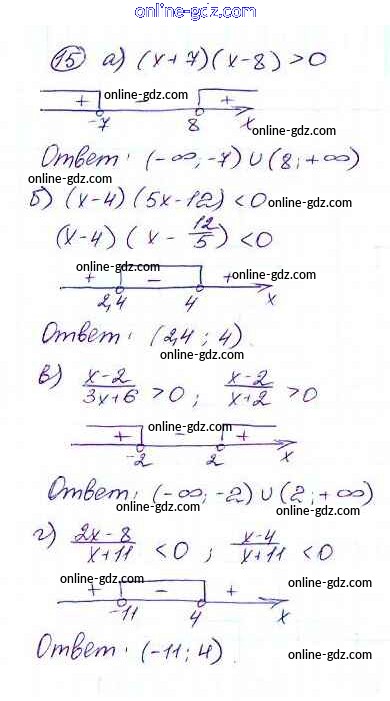 online-gdz.com
15 а) (x+7)(x-8)>0
+ online-gdz.com - online-gdz.com +
-7 8 x
online-gdz.com
Ответ: (-∞;-7)∪(8;+∞)
online-gdz.com
б) (x-4)(5x-12)<0 online-gdz.com
(x-4)(x-12/5)<0
online-gdz.com
+ - + online-gdz.com
2,4 4 x
online-gdz.com
Ответ: (2,4; 4)
online-gdz.com
в) x-2/3x+6 >0; x-2/x+2 >0
online-gdz.com
online-gdz.com
+ - +
-2 2 x
online-gdz.com
Ответ: (-∞;-2)∪(2;+∞)
online-gdz.com online-gdz.com
г) 2x-8/x+11 <0; x-4/x+11 <0
online-gdz.com
online-gdz.com
+ - +
-11 4 x
online-gdz.com
Ответ: (-11; 4)
online-gdz.com
online-gdz.com